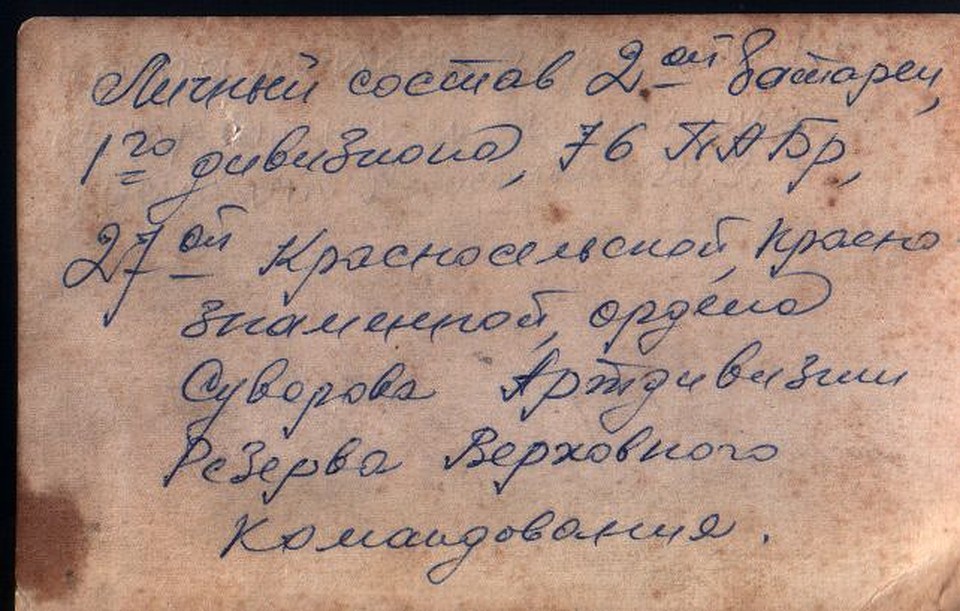 Личный состав 2ой батареи,
1го дивизиона, 76 ПАБр,
27ой Красносельской, Красно
знаменной, ордена
Суворова Артдивизии
Резерва Верховного
Командования.